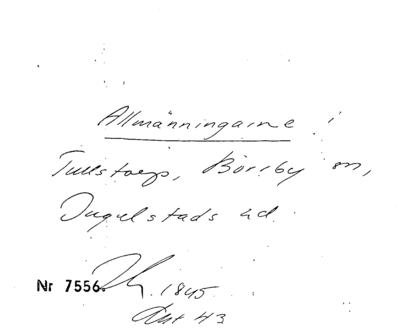 Allmänningarne i
Tullstorp, Börrby sn,
Ingelstads hd.
Nr 7556. 1845
Akt 43